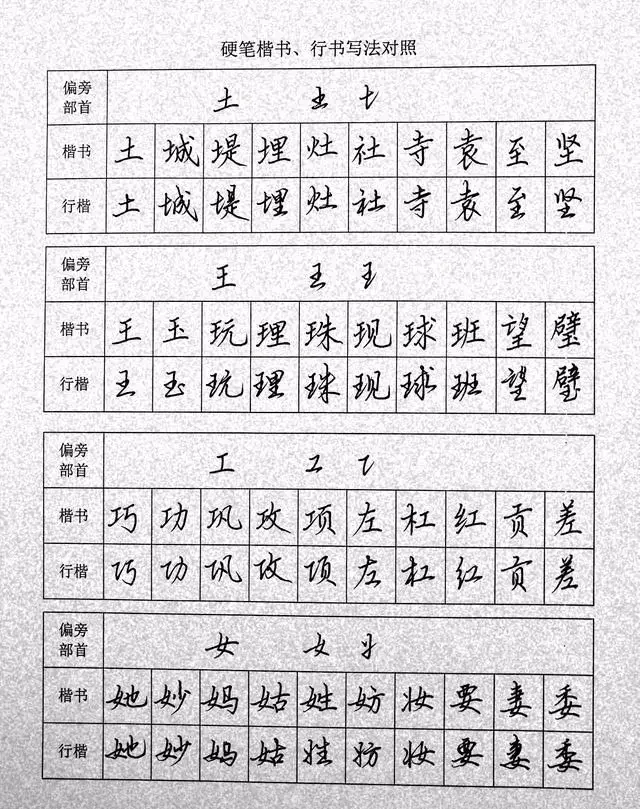 硬笔楷书、行书写法对照
偏旁部首 土
楷书 土 城 堤 埋 灶 社 寺 袁 至 坚
行楷 土 城 堤 埋 灶 社 寺 袁 至 坚
偏旁部首 王
楷书 王 玉 玩 理 珠 现 球 班 望 璧
行楷 王 玉 玩 理 珠 现 球 班 望 璧
偏旁部首 工
楷书 巧 功 巩 攻 项 左 杠 红 贡 差
行楷 巧 功 巩 攻 项 左 杠 红 贡 差
偏旁部首 女
楷书 她 妙 妈 姑 姓 妨 妆 要 妻 委
行楷 她 妙 妈 姑 姓 妨 妆 要 妻 委